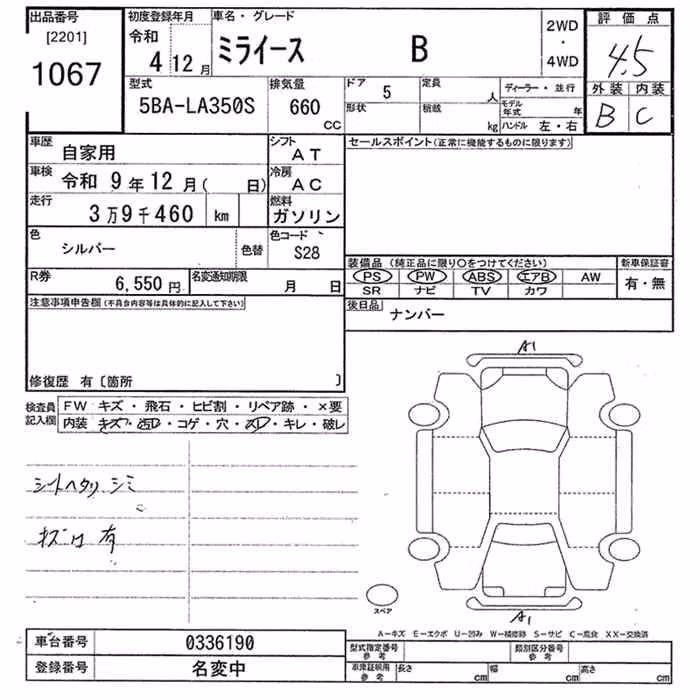 出品番号
[2201]
1067
初度登録年月
令和
4 12 月
車名・グレード
ミライース B
2WD
・
4WD
評価点
4.5
外装 内装
B C
型式
5BA-LA350S
排気量
660
CC
ドア
5
定員
人
形状
積載
kg
ディーラー・並行
モデル年式 年
ハンドル 左・右
車歴
自家用
シフト
AT
セールスポイント(正常に機能するものに限ります)
車検
令和 9年12月( 日)
冷房
AC
走行
3万9千460 km
燃料
ガソリン
色
シルバー
色替
色コード
S28
装備品 (純正品に限り○をつけてください)
PS PW ABS エアB AW
SR ナビ TV カワ
新車保証書
有・無
R券
6,550 円
名変通知期限
月 日
後日品
ナンバー
注意事項申告欄(不具合内容等は具体的に記入して下さい)
修復歴 有〔箇所 〕
検査員
記入欄
FW キズ・飛石・ヒビ割・リペア跡・×要
内装 キズ・汚レ・コゲ・穴・スレ・キレ・破レ
シートヘタリ シミ
有
A1
A1
スペア
A-キズ E-エクボ U-凹み W-補修跡 S-サビ C-腐食 XX-交換済
車台番号
0336190
登録番号
名変中
型式指定番号
参考
類別区分番号
参考
車庫証明用
参考
長さ cm
幅 cm
高さ cm